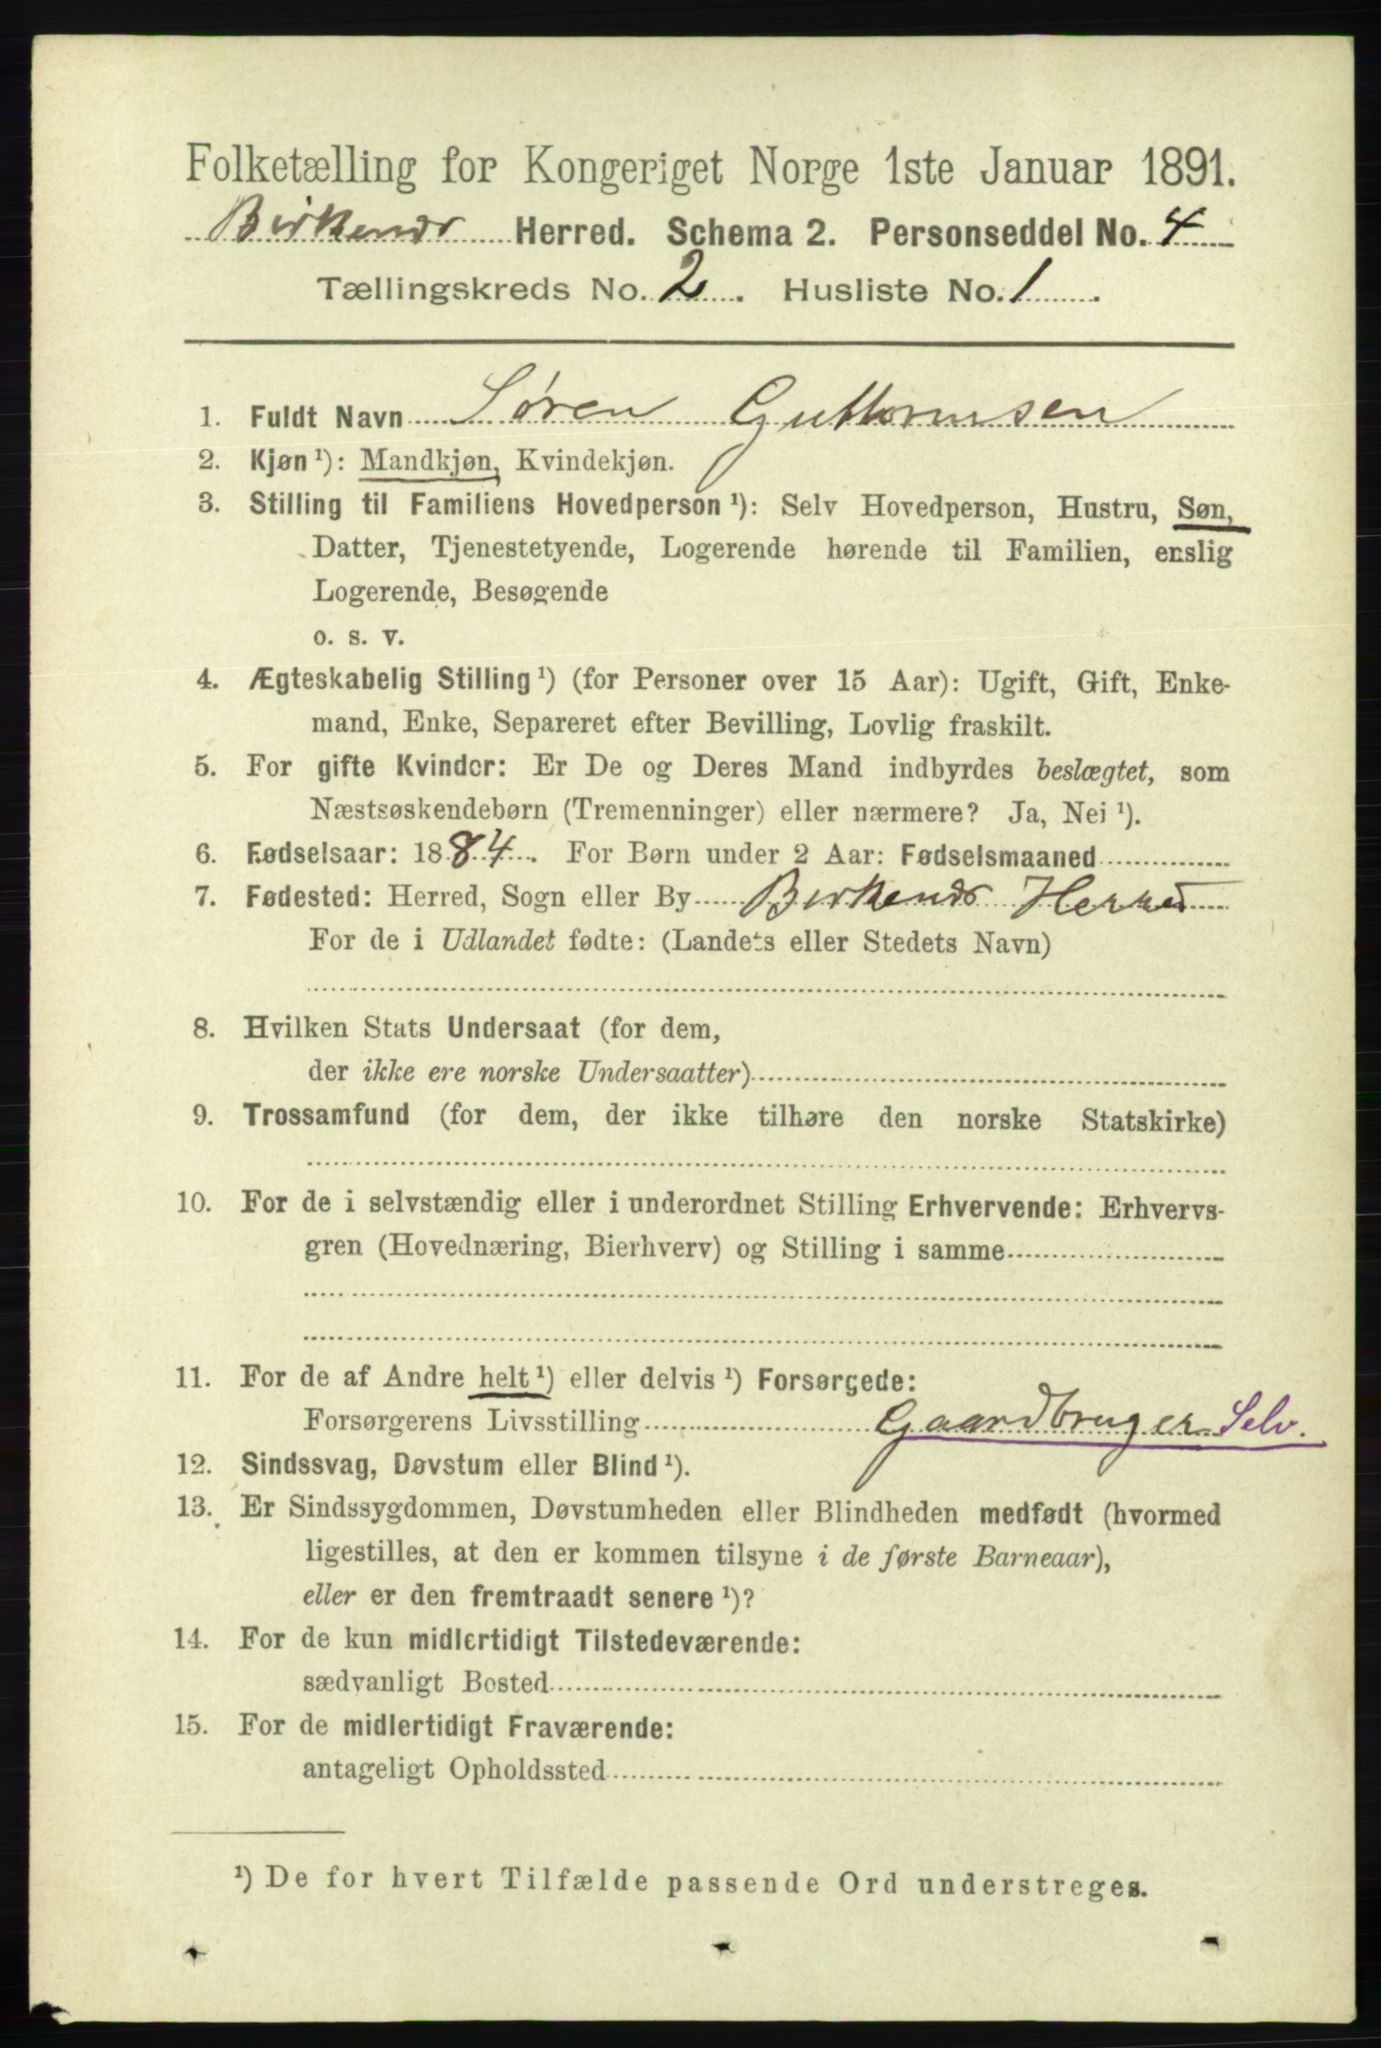 Folketælling for Kongeriget Norge 1ste Januar 1891.
Birkenes Herred. Schema 2. Personseddel No. 4
Tællingskreds No. 2. Husliste No. 1.
1. Fuldt Navn Søren Guttormsen
2. Kjøn ¹): Mandkjøn, Kvindekjøn.
3. Stilling til Familiens Hovedperson ¹): Selv Hovedperson, Hustru, Søn,
Datter, Tjenestetyende, Logerende hørende til Familien, enslig
Logerende, Besøgende
o. s. v.
4. Ægteskabelig Stilling ¹) (for Personer over 15 Aar): Ugift, Gift, Enke-
mand, Enke, Separeret efter Bevilling, Lovlig fraskilt.
5. For gifte Kvinder: Er De og Deres Mand indbyrdes beslægtet, som
Næstsøskendebørn (Tremenninger) eller nærmere? Ja, Nei ¹).
6. Fødselsaar: 1884. For Børn under 2 Aar: Fødselsmaaned
7. Fødested: Herred, Sogn eller By Birkenes Herred
For de i Udlandet fødte: (Landets eller Stedets Navn)
8. Hvilken Stats Undersaat (for dem,
der ikke ere norske Undersaatter)
9. Trossamfund (for dem, der ikke tilhøre den norske Statskirke)
10. For de i selvstændig eller i underordnet Stilling Erhvervende: Erhvervs-
gren (Hovednæring, Bierhverv) og Stilling i samme
11. For de af Andre helt ¹) eller delvis ¹) Forsørgede:
Forsørgerens Livsstilling Gaardbruger Selv.
12. Sindssvag, Døvstum eller Blind ¹).
13. Er Sindssygdommen, Døvstumheden eller Blindheden medfødt (hvormed
ligestilles, at den er kommen tilsyne i de første Barneaar),
eller er den fremtraadt senere ¹)?
14. For de kun midlertidigt Tilstedeværende:
sædvanligt Bosted
15. For de midlertidigt Fraværende:
antageligt Opholdssted
¹) De for hvert Tilfælde passende Ord understreges.